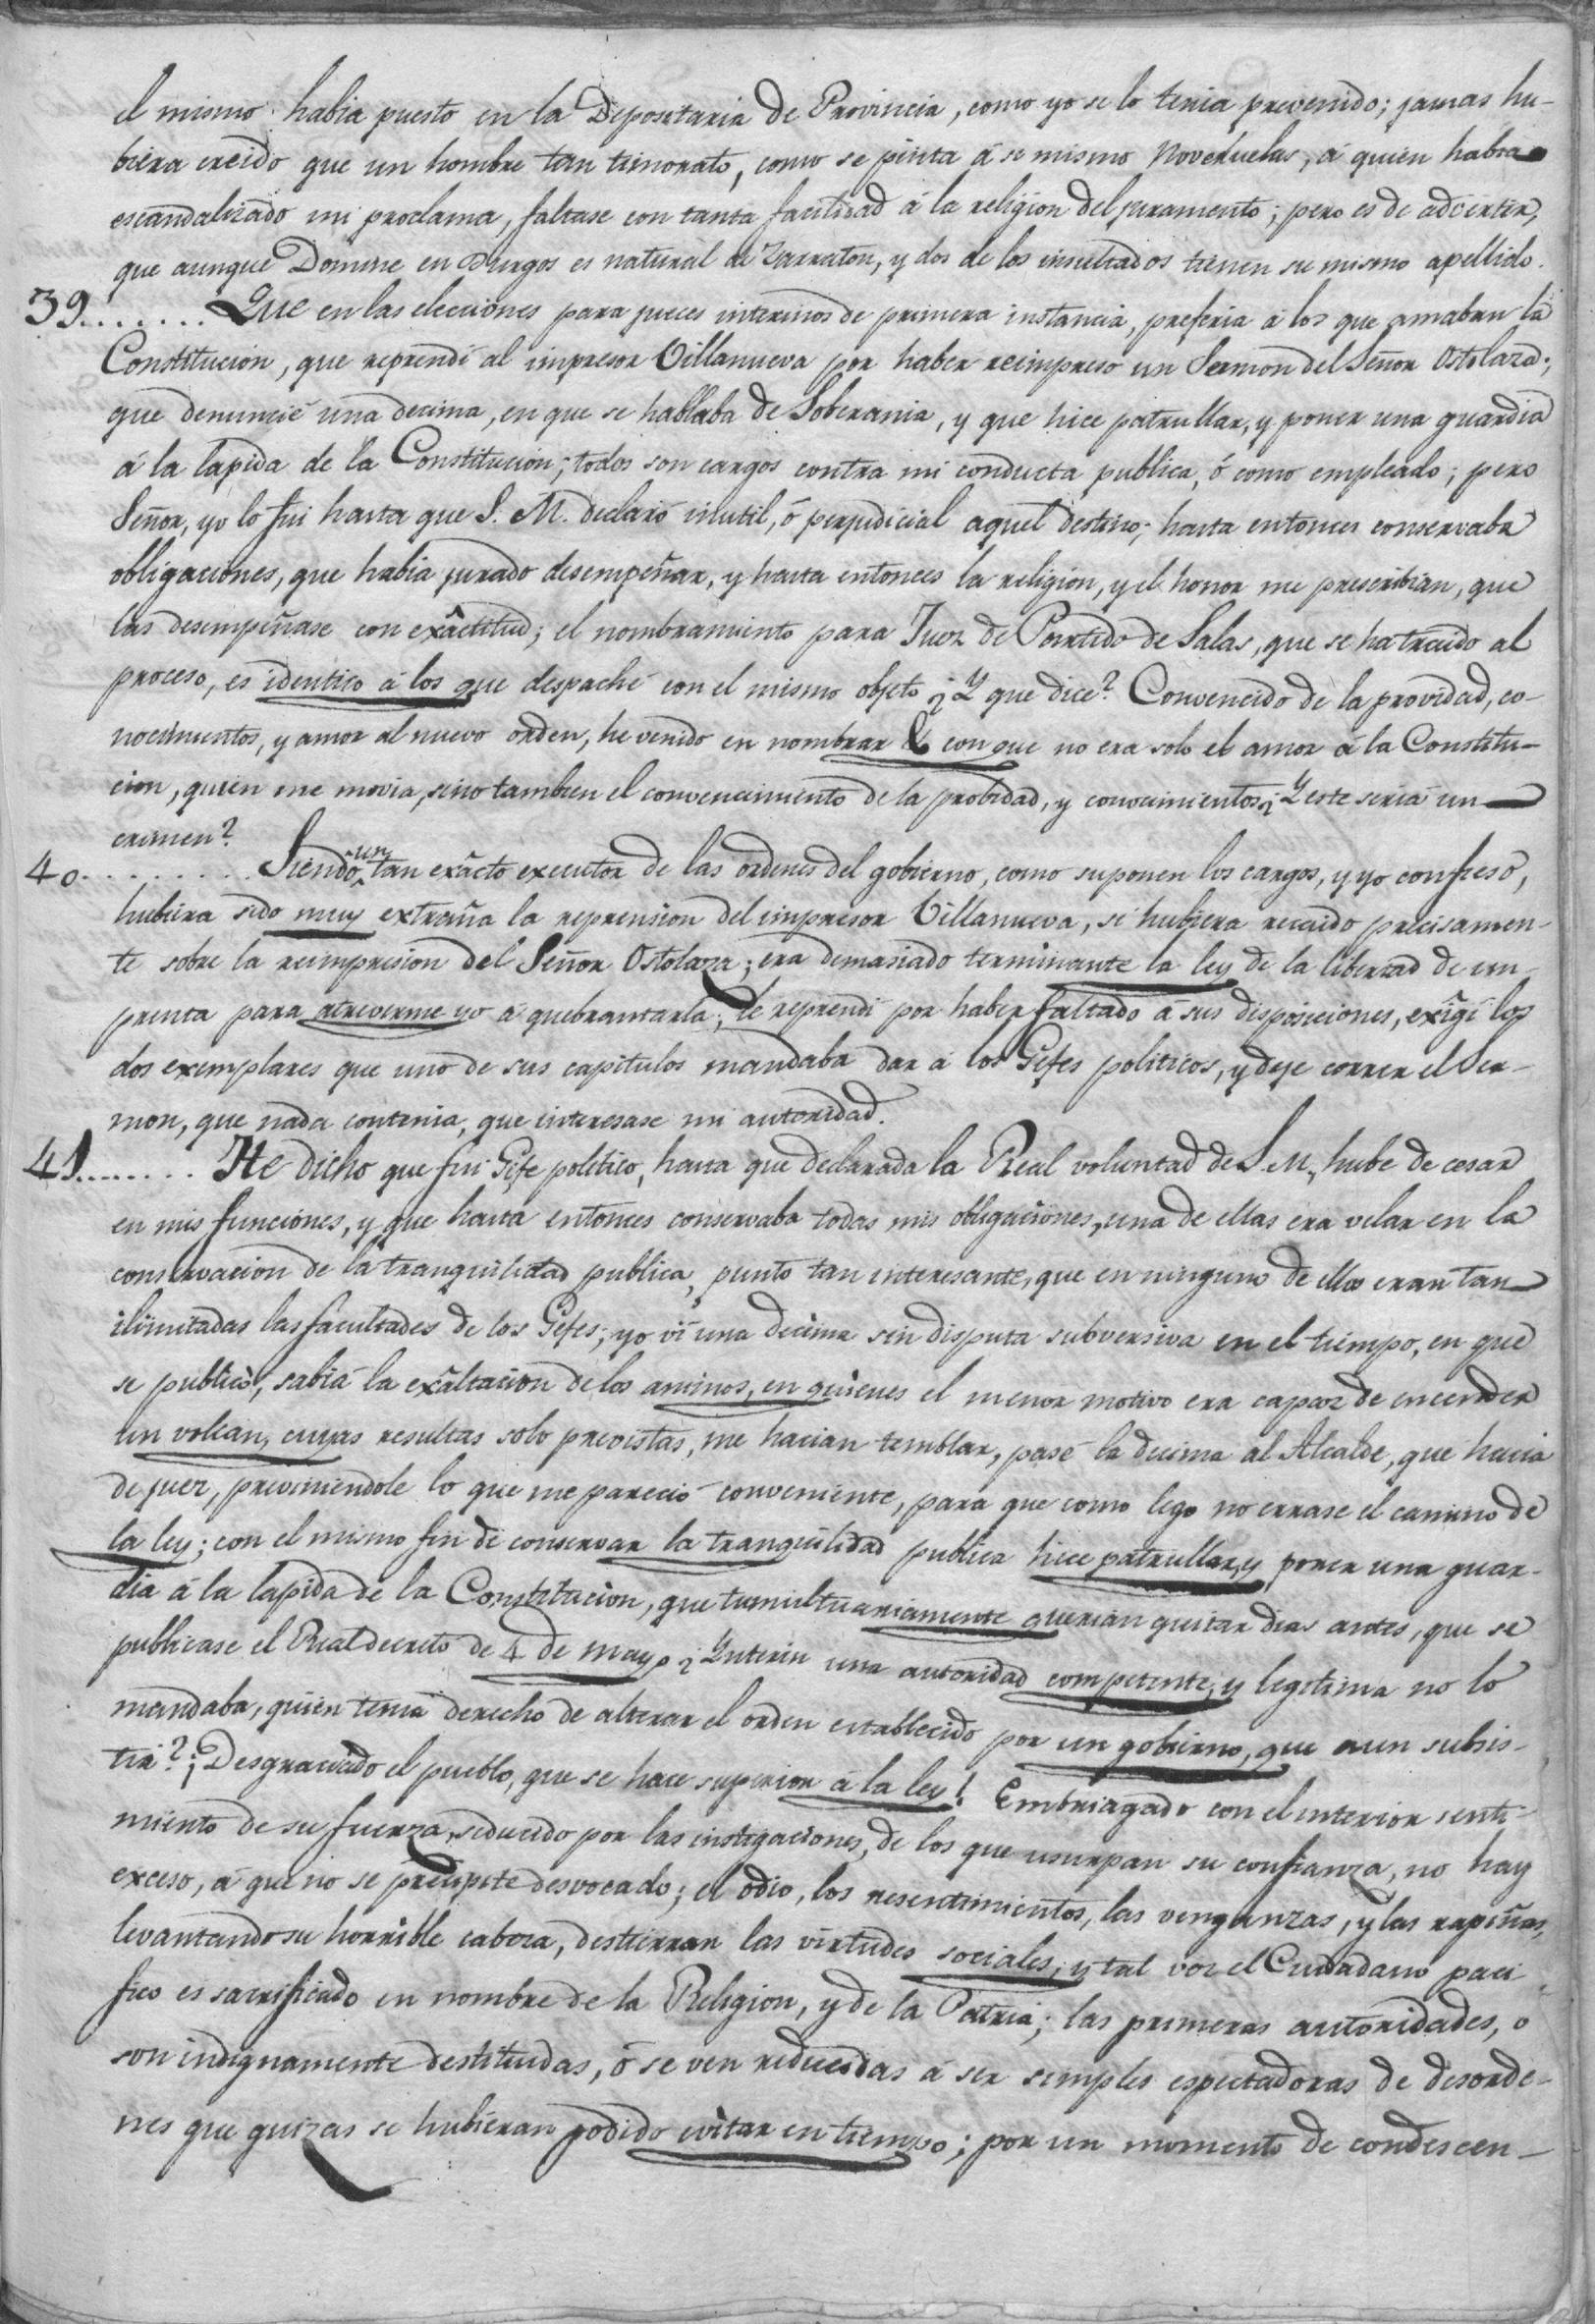 el mismo habia puesto en la Depositaria de Provincia, como yo se lo tenia prevenido; jamas hu-
biera creido que un hombre tan timorato, como se pinta á se mismo Novehuelas, á quien habia
escandalizado mi proclama, faltase con tanta facilidad á la religion del juramento; pero es de advertir,
que aunque Domine en Burgos es natural de Zarraton, y dos de los insultados tienen su mismo apellido.
39........ Que en las elecciones para jueces interinos de primera instancia, preferia á los que amaban la
Constitucion, que reprendi al impresor Villanueva por haber reimpreso un Sermon del Señor Ostolaza;
que denuncié una decima, en que se hablaba de Soberania, y que hice patrullar, y poner una guardia
á la lapida de la Constitucion; todos son cargos contra mi conducta publica, ó como empleado; pero
Señor, yo lo fui hasta que S. M. declaró inutil, ó perjudicial aquel destino; hasta entonces conservaba
obligaciones, que habia jurado desempeñar, y hasta entonces la religion, y el honor me prescribian, que
las desempeñase con exâctitud; el nombramiento para Juez de Partido de Salas, que se ha traido al
proceso, es identico á los que despaché con el mismo objeto ¿Y que dice? Convencido de la providad, co-
nocimientos, y amor al nuevo orden, he venido en nombrar & con que no era solo el amor á la Constitu-
cion, quien me movia, sino tambien el convencimiento de la probidad, y conocimientos ¿Y este seria un
crimen?
40.......... Siendo un tan exâcto executor de las ordenes del gobierno, como suponen los cargos, y yo confieso,
hubiera sido muy extraña la reprension del impresor Villanueva, si hubiera recaido precisamen-
te sobre la reimpresion del Señor Ostolaza; era demasiado terminante la ley de la libertad de im-
prenta para atreverme yo á quebrantarla; le reprendi por haber faltado á sus disposiciones, exîgi los
dos exemplares que uno de sus capitulos mandaba dar á los Gefes politicos, y deje correr el Ser-
mon, que nada contenia, que interesase mi autoridad.
41........ He dicho que fui Gefe politico, hasta que declarada la Real voluntad de S. M., hube de cesar
en mis funciones, y que hasta entonces conservaba todas mis obligaciones, una de ellas era velar en la
conservacion de la tranquilidad publica, punto tan interesante, que en ninguno de ellos eran tan
ilimitadas las facultades de los Gefes; yo vi una decima sin disputa subversiva en el tiempo, en que
se publicó, sabia la exâltacion de los animos, en quienes el menor motivo era capaz de encender
un volcan, cuyas resultas solo previstas, me hacian temblar, pasé la decima al Alcalde, que hacia
de juez, previniendole lo que me pareció conveniente, para que como lego no errase el camino de
la ley; con el mismo fin de conservar la tranquilidad publica hice patrullar, y poner una guar-
dia á la lapida de la Constitucion, que tumultuariamente querian quitar dias antes, que se
publicase el Real decreto de 4 de mayo ¿Ynterin una autoridad competente, y legitima no lo
mandaba, quien tenia derecho de alterar el orden establecido por un gobierno, que aun subsis-
tia? ¡Desgraciado el pueblo, que se hace superior á la ley! Embriagado con el interior senti-
miento de su fuerza, seducido por las instigaciones, de los que usurpan su confianza, no hay
exceso, á que no se precipite desvocado; el odio, los resentimientos, las venganzas, y las rapiñas,
levantando su horrible cabeza, destierran las virtudes sociales; y tal vez el Ciudadano paci-
fico es sacrificado en nombre de la Religion, y de la Patria; las primeras autoridades, o
son indignamente destituidas, ó se ven reducidas á ser simples espectadoras de desorde-
nes que quizas se hubieran podido evitar en tiempo; por un momento de condescen-